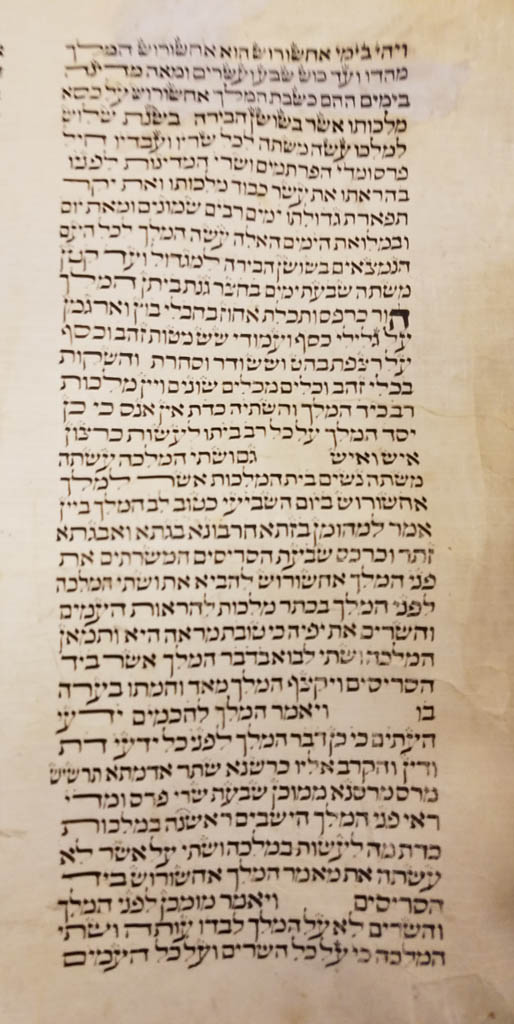 ויהי בימי אחשורוש הוא אחשורוש המלך
מהדו ועד כוש שבע ועשרים ומאה מדינה
בימים ההם כשבת המלך אחשורוש על כסא
מלכותו אשר בשושן הבירה בשנת שלוש
למלכו עשה משתה לכל שריו ועבדיו חיל
פרס ומדי הפרתמים ושרי המדינות לפניו
בהראתו את עשר כבוד מלכותו ואת יקר
תפארת גדולתו ימים רבים שמונים ומאת יום
ובמלואת הימים האלה עשה המלך לכל העם
הנמצאים בשושן הבירה למגדול ועד קטן
משתה שבעת ימים בחצר גנת ביתן המלך
חור כרפס ותכלת אחוז בחבלי בוץ וארגמן
על גלילי כסף ועמודי שש מטות זהב וכסף
על רצפת בהט ושש ודר וסחרת והשקות
בכלי זהב וכלים מכלים שונים ויין מלכות
רב כיד המלך והשתיה כדת אין אנס כי כן
יסד המלך על כל רב ביתו לעשות כרצון
איש ואיש גם ושתי המלכה עשתה
משתה נשים בית המלכות אשר למלך
אחשורוש ביום השביעי כטוב לב המלך ביין
אמר למהומן בזתא חרבונא בגתא ואבגתא
זתר וכרכס שבעת הסריסים המשרתים את
פני המלך אחשורוש להביא את ושתי המלכה
לפני המלך בכתר מלכות להראות העמים
והשרים את יפיה כי טובת מראה היא ותמאן
המלכה ושתי לבוא בדבר המלך אשר ביד
הסריסים ויקצף המלך מאד וחמתו בערה
בו ויאמר המלך לחכמים ידעי
העתים כי כן דבר המלך לפני כל ידעי דת
ודין והקרב אליו כרשנא שתר אדמתא תרשיש
מרס מרסנא ממוכן שבעת שרי פרס ומדי
ראי פני המלך הישבים ראשנה במלכות
כדת מה לעשות במלכה ושתי על אשר לא
עשתה את מאמר המלך אחשורוש ביד
הסריסים ויאמר מומכן לפני המלך
והשרים לא על המלך לבדו עותה ושתי
המלכה כי על כל השרים ועל כל העמים